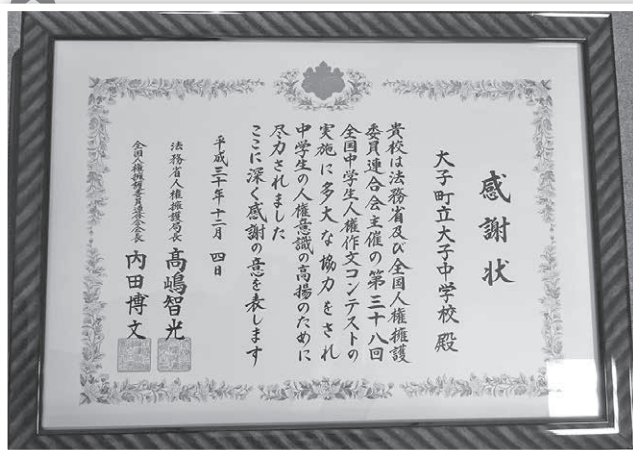 感謝状
大子町立大子中学校 殿
貴校は法務省及び全国人権擁護
委員連合会主催の第三十八回
全国中学生人権作文コンテストの
実施に多大な協力をされ
中学生の人権意識の高揚のために
尽力されました
ここに深く感謝の意を表します
平成三十年十二月 四日
法務省人権擁護局長 髙嶋智光
全国人権擁護委員連合会会長 内田博文